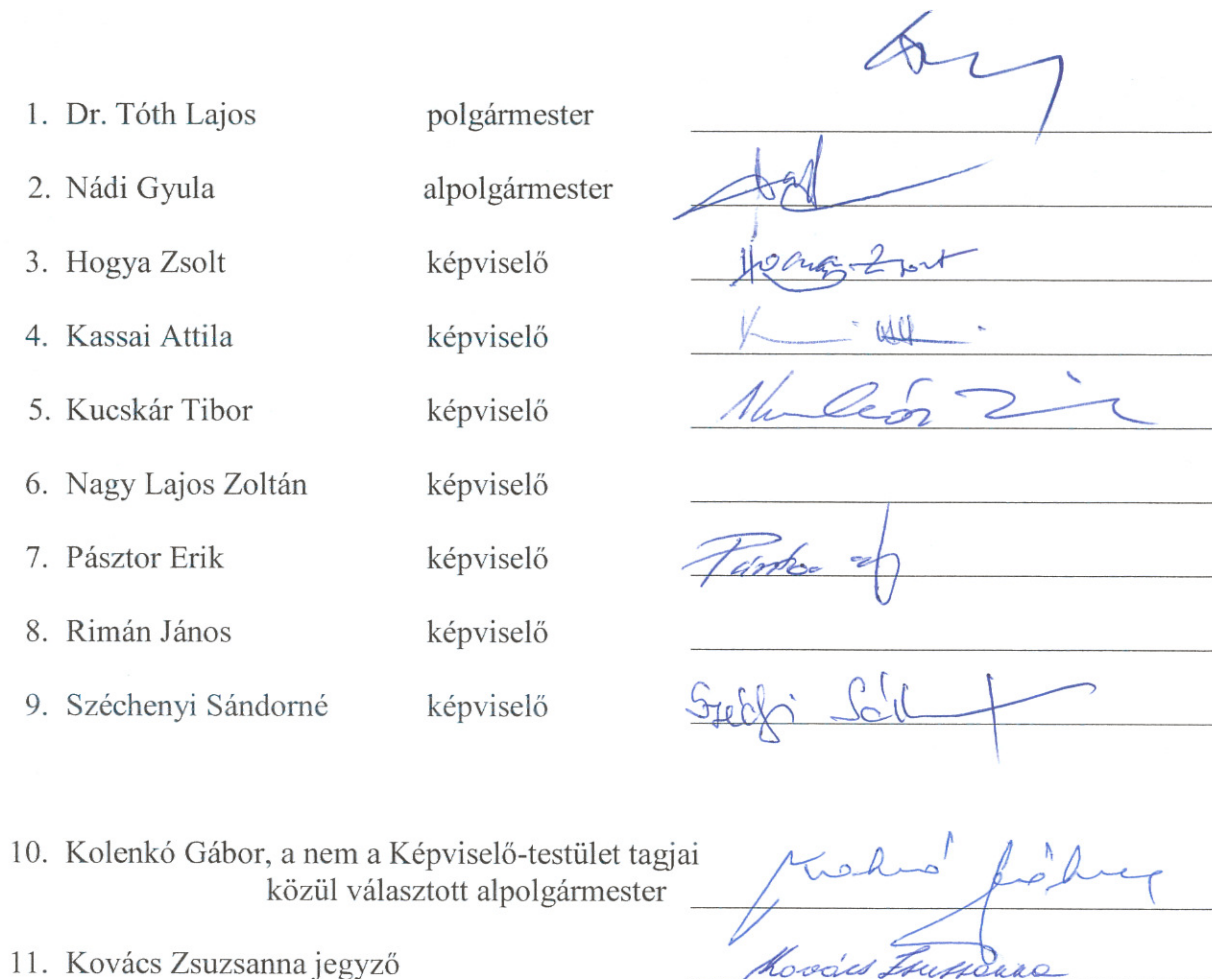 1. Dr. Tóth Lajos polgármester
2. Nádi Gyula alpolgármester
3. Hogya Zsolt képviselő
4. Kassai Attila képviselő
5. Kucskár Tibor képviselő
6. Nagy Lajos Zoltán képviselő
7. Pásztor Erik képviselő
8. Rimán János képviselő
9. Széchenyi Sándorné képviselő
10. Kolenkó Gábor, a nem a Képviselő-testület tagjai
közül választott alpolgármester
11. Kovács Zsuzsanna jegyző Kovács Zsuzsanna